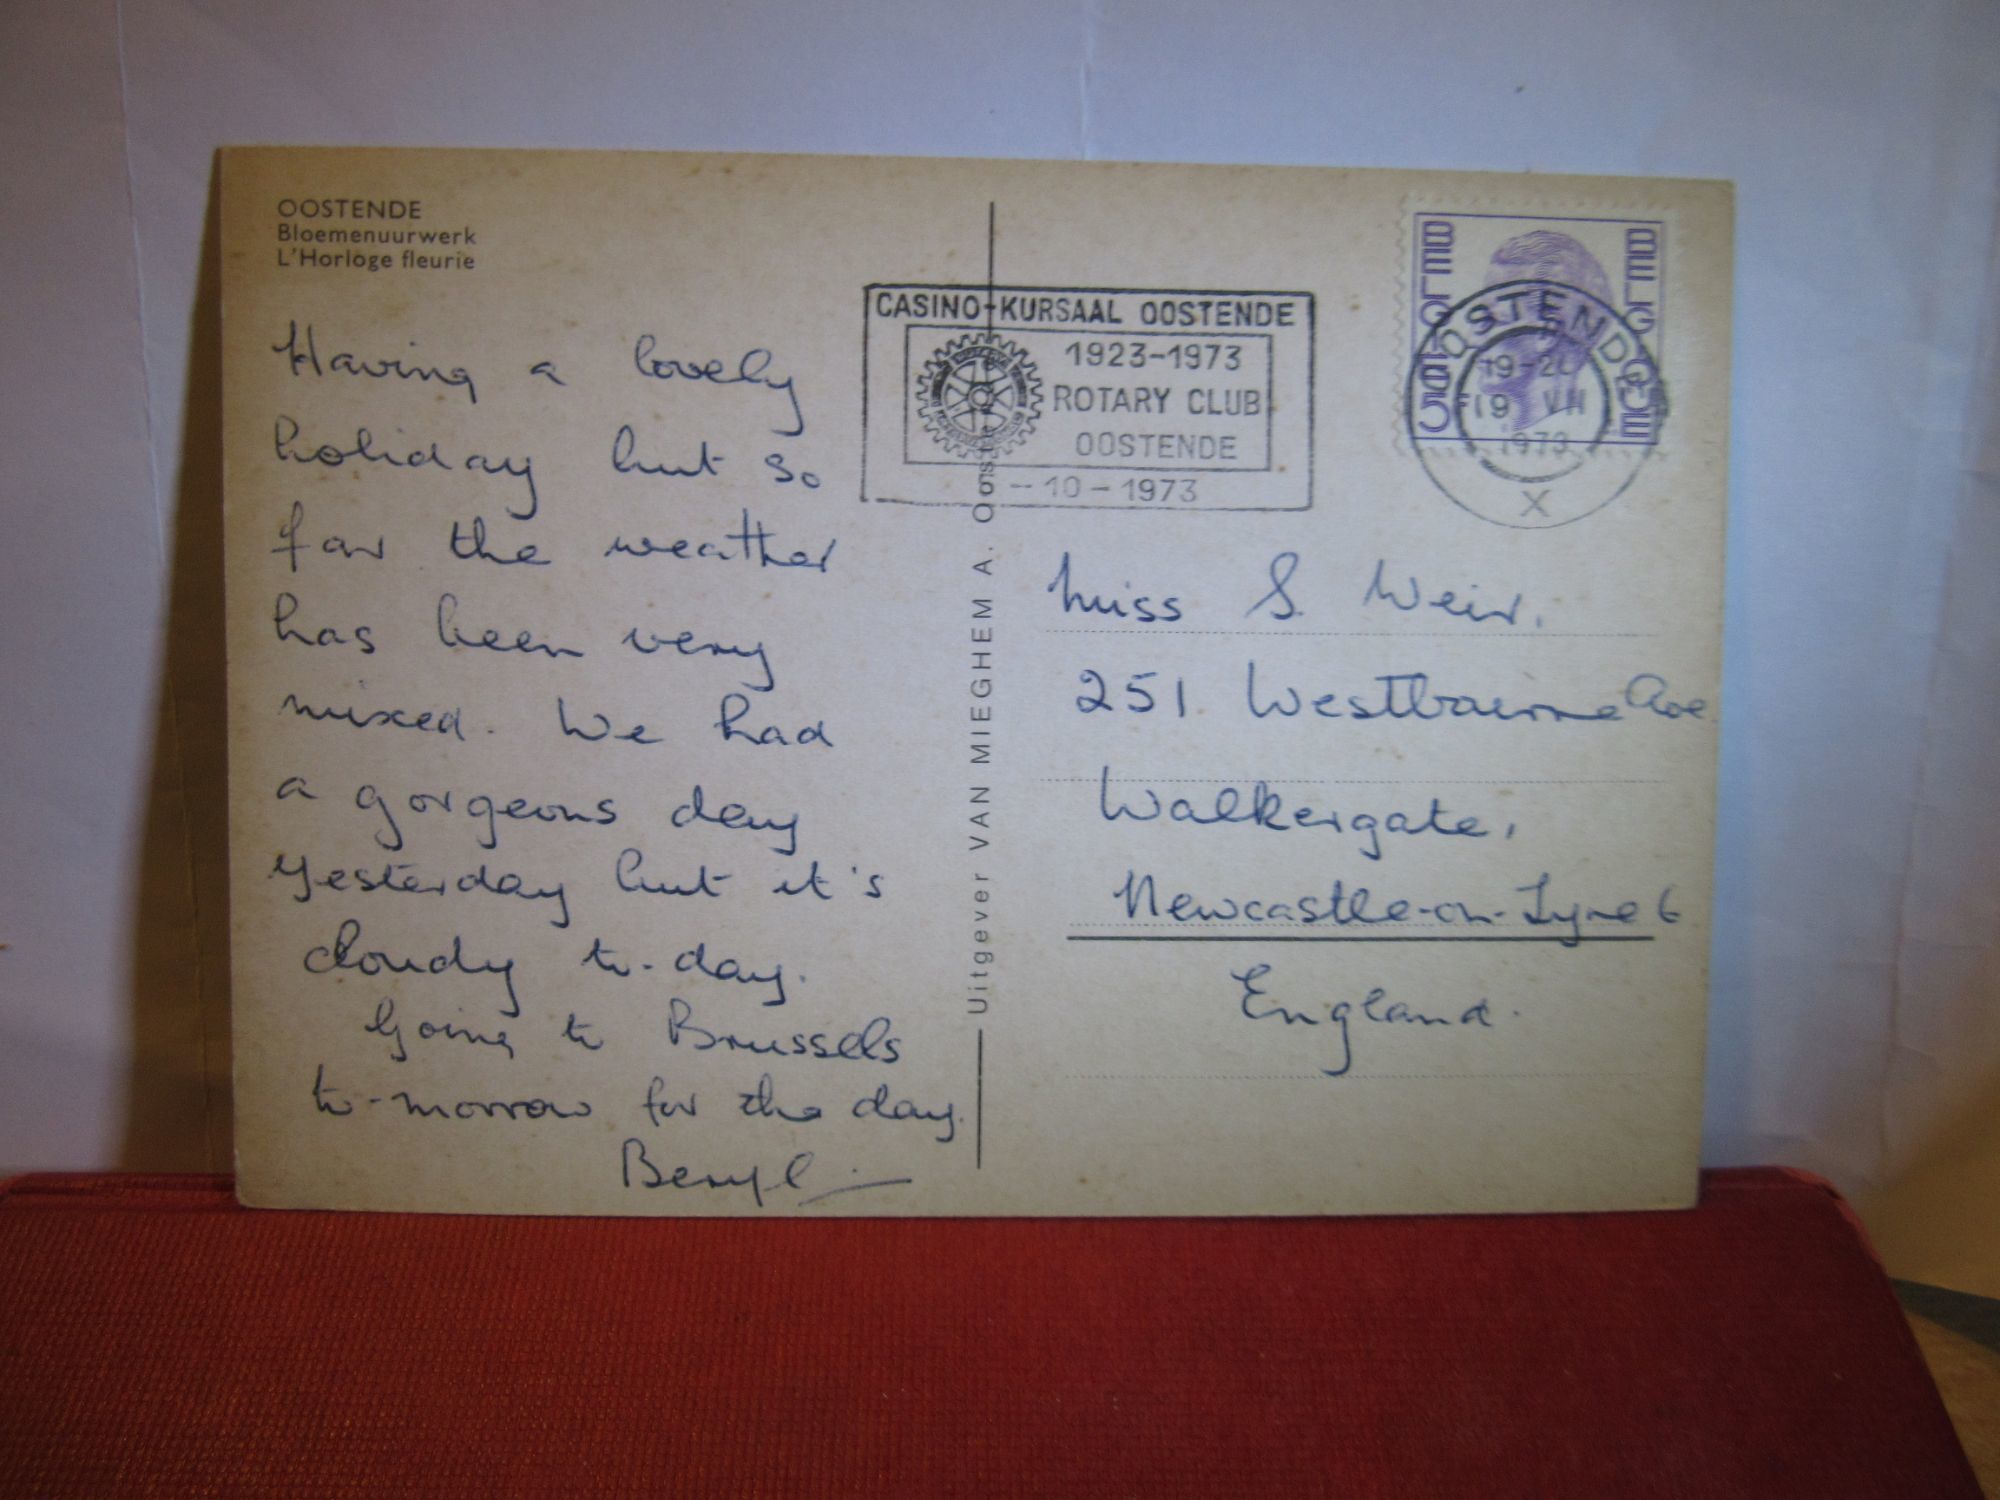 OOSTENDE
Bloemenuurwerk
L'Horloge fleurie
Having a lovely
holiday but so
far the weather
has been very
mixed. We had
a gorgeous day
yesterday but it's
cloudy to-day.
Going to Brussels
to-morrow for the day.
Beryl
Uitgever VAN MIEGHEM A. Oostende
CASINO-KURSAAL OOSTENDE
1923-1973
ROTARY CLUB
OOSTENDE
-10-1973
BELGIQUE
BELGIE
5F
OOSTENDE
19 VII
1973
X
Miss S. Weir.
251 Westbourne Ave
Walkergate,
Newcastle-on-Tyne 6
England.